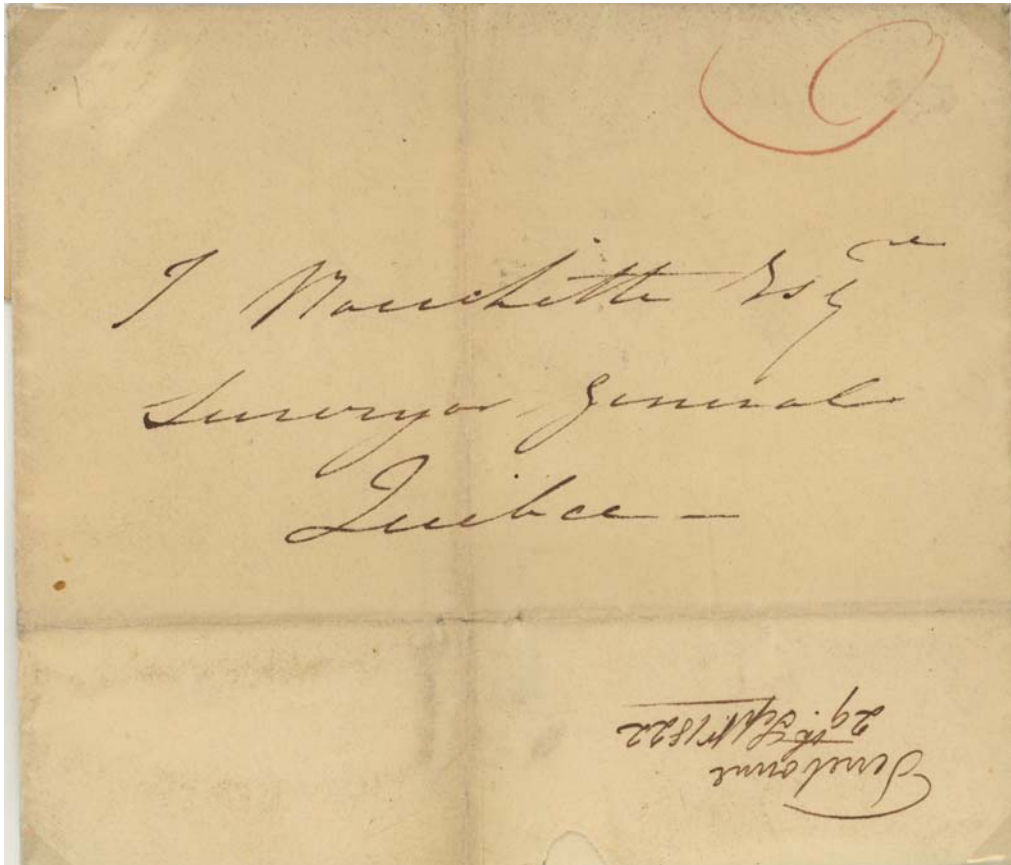 J Bouchette Esqre
Surveyor General
Quebec —
Terrebonne
29th Septr 1822